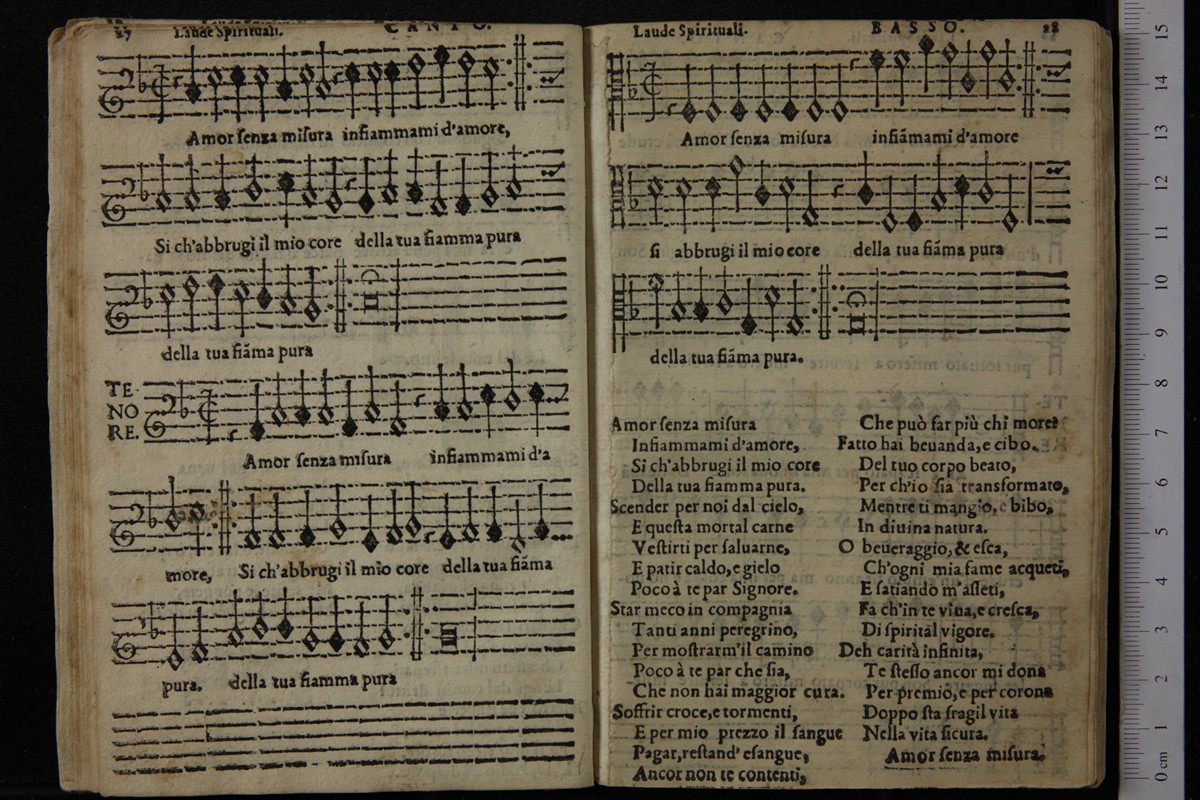 27 Laude Spirituali. CANTO.
Amor ſenza miſura infiammami d'amore,
Si ch'abbrugi il mio core della tua fiamma pura
della tua fiãma pura
TE
NO
RE.
Amor ſenza miſura infiammami d'a
more, Si ch'abbrugi il mio core della tua fiãma
pura. della tua fiamma pura
Laude Spirituali. BASSO. 28
Amor ſenza miſura infiãmami d'amore
ſi abbrugi il mio core della tua fiãma pura
della tua fiãma pura.
Amor ſenza miſura
Infiammami d'amore,
Si ch'abbrugi il mio core
Della tua fiamma pura.
Scender per noi dal cielo,
E queſta mortal carne
Veſtirti per ſaluarne,
E patir caldo, e gielo
Poco à te par Signore.
Star meco in compagnia
Tanti anni peregrino,
Per moſtrarm'il camino
Poco à te par che ſia,
Che non hai maggior cura.
Soffrir croce, e tormenti,
E per mio prezzo il ſangue
Pagar, reſtand' eſangue,
Ancor non te contenti,
Che può far più chi more?
Fatto hai beuanda, e cibo.
Del tuo corpo beato,
Per ch'io ſia transformato,
Mentre ti mangio, e bibo,
In diuina natura.
O beueraggio, & eſca,
Ch'ogni mia fame acqueti,
E ſatiando m'aſſeti,
Fa ch'in te viua, e creſca,
Di ſpirital vigore.
Deh carità infinita,
Te ſteſſo ancor mi dona
Per premio, e per corona
Doppo ſta fragil vita
Nella vita ſicura.
Amor ſenza miſura.
0 cm 1 2 3 4 5 6 7 8 9 10 11 12 13 14 15